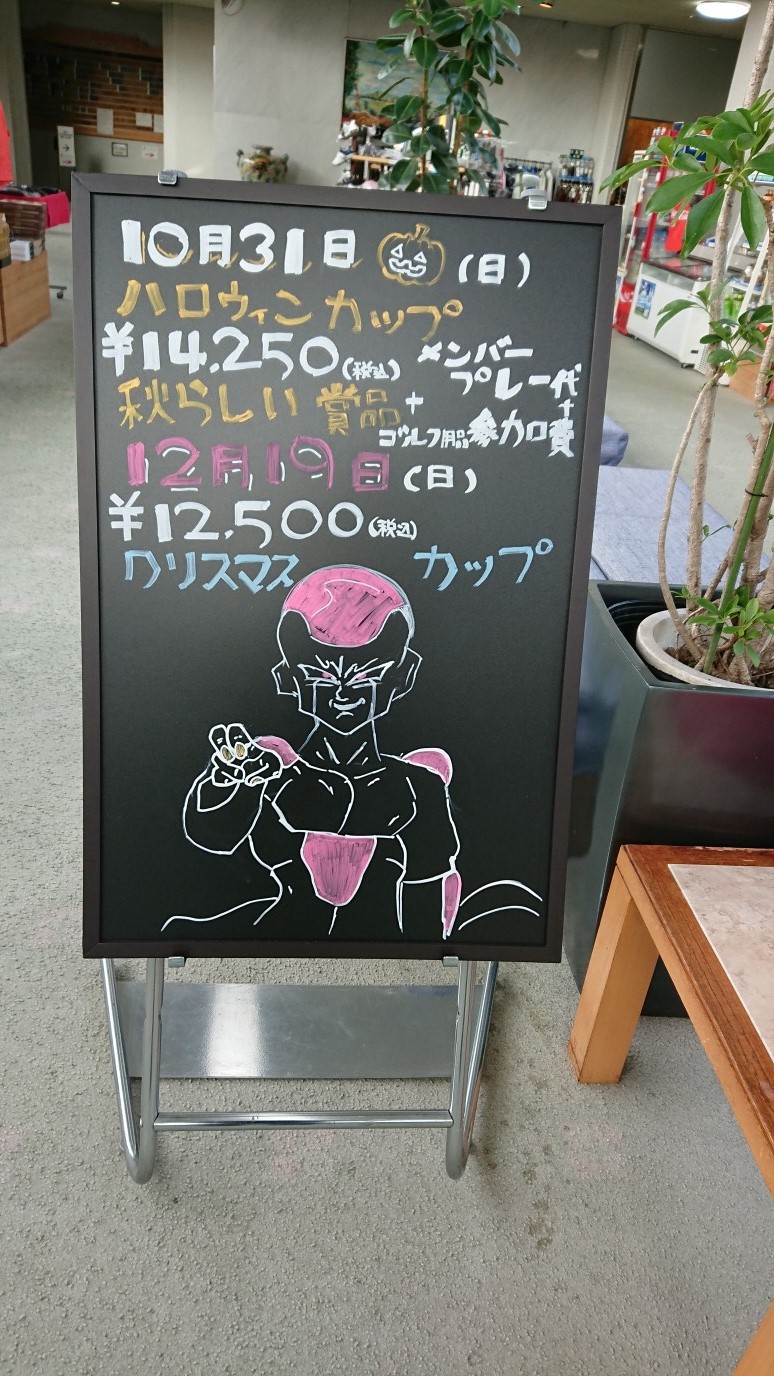 10月31日 (日)
ハロウィンカップ
¥14,250(税込) メンバー
プレー代
+
秋らしい賞品+
ゴルフ用品参加費
12月19日(日)
¥12,500(税込)
クリスマス カップ